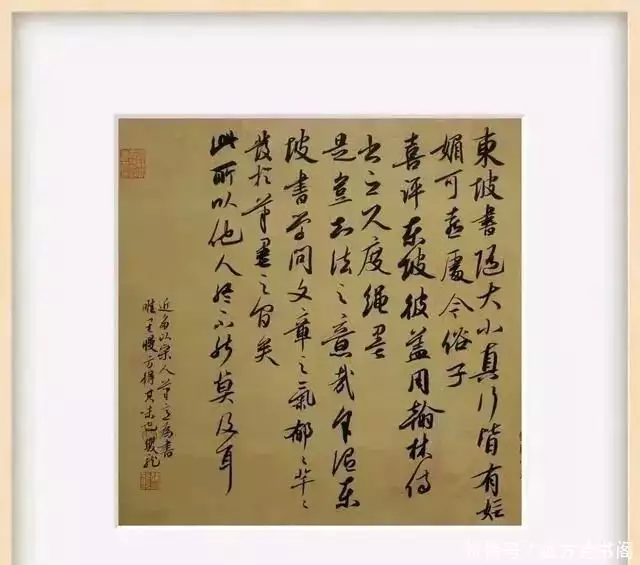 東坡書隨大小真行皆有娬
媚可喜處今俗子
喜評東坡彼蓋用翰林侍
書之尺度繩墨
是豈知法之意哉余謂東
坡書學問文章之氣郁々芊々
發於筆墨之間矣
此所以他人終不能莫及耳
近多以宋人筆意為書
慢方得其味也